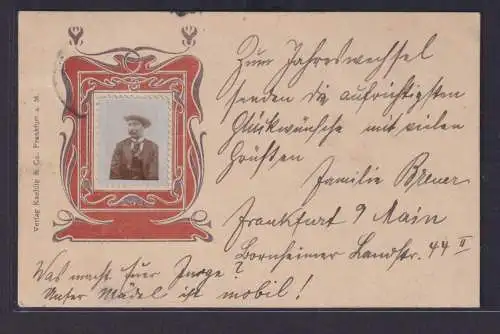 Zum Jahreswechsel
senden die aufrichtigsten
Glückwünsche mit vielen
Grüßen
Familie Breuer
Frankfurt a/Main
Bornheimer Landstr. 44 II
Was macht Euer Junge?
Unser Mädel ist mobil!
Verlag Knehling & Co., Frankfurt a. M.